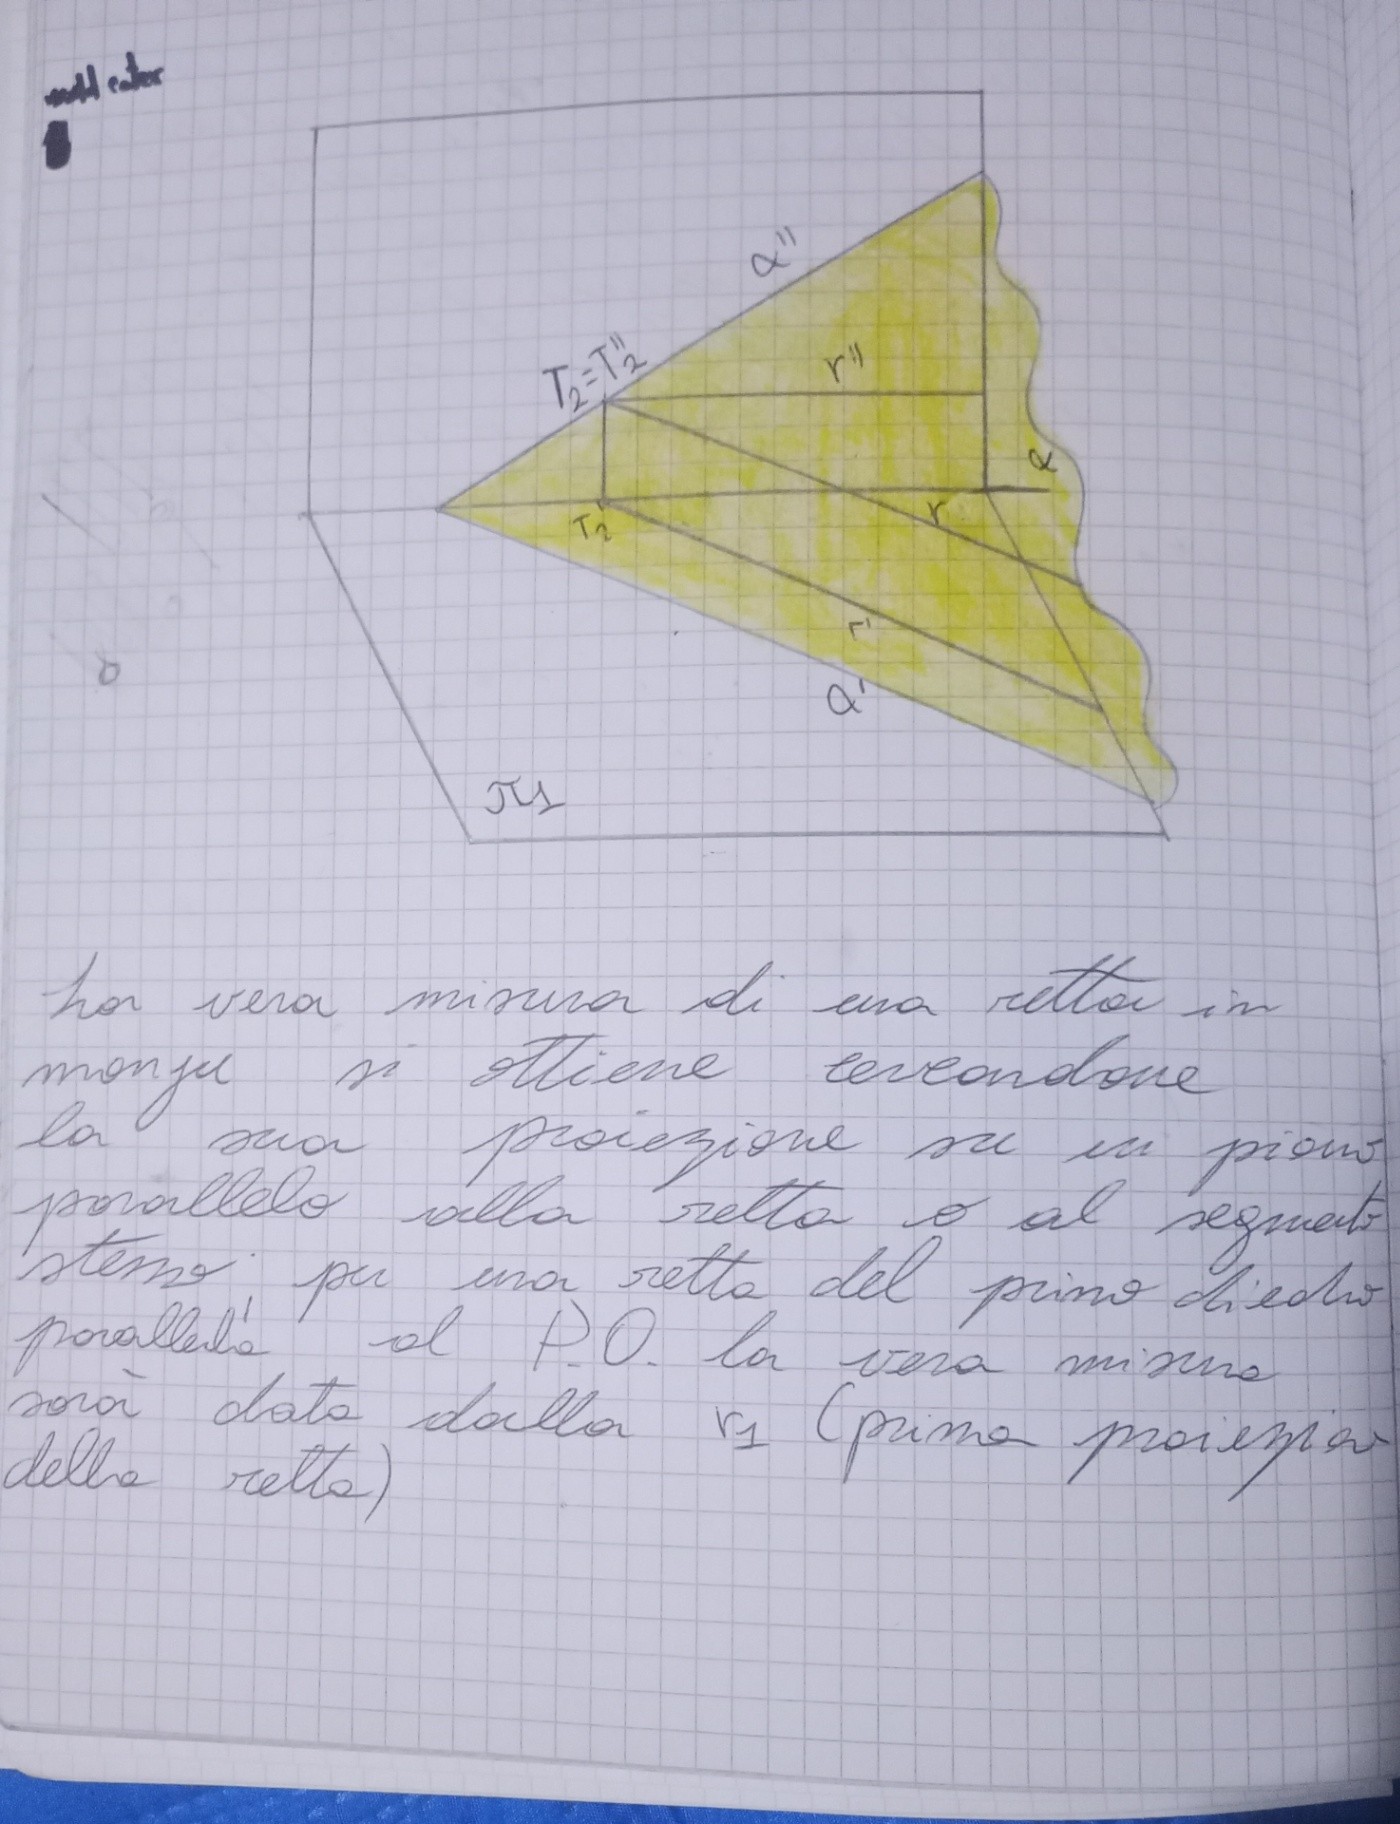 α"
T₂=T₂"
r"
α
r
T₂'
r'
α'
π1
La vera misura di una retta in
monge si ottiene cercandone
la sua proiezione su un piano
parallelo alla retta o al segmento
stesso; per una retta del primo diedro
parallela al P.O. la vera misura
sarà data dalla r1 (prima proiezion
della retta)